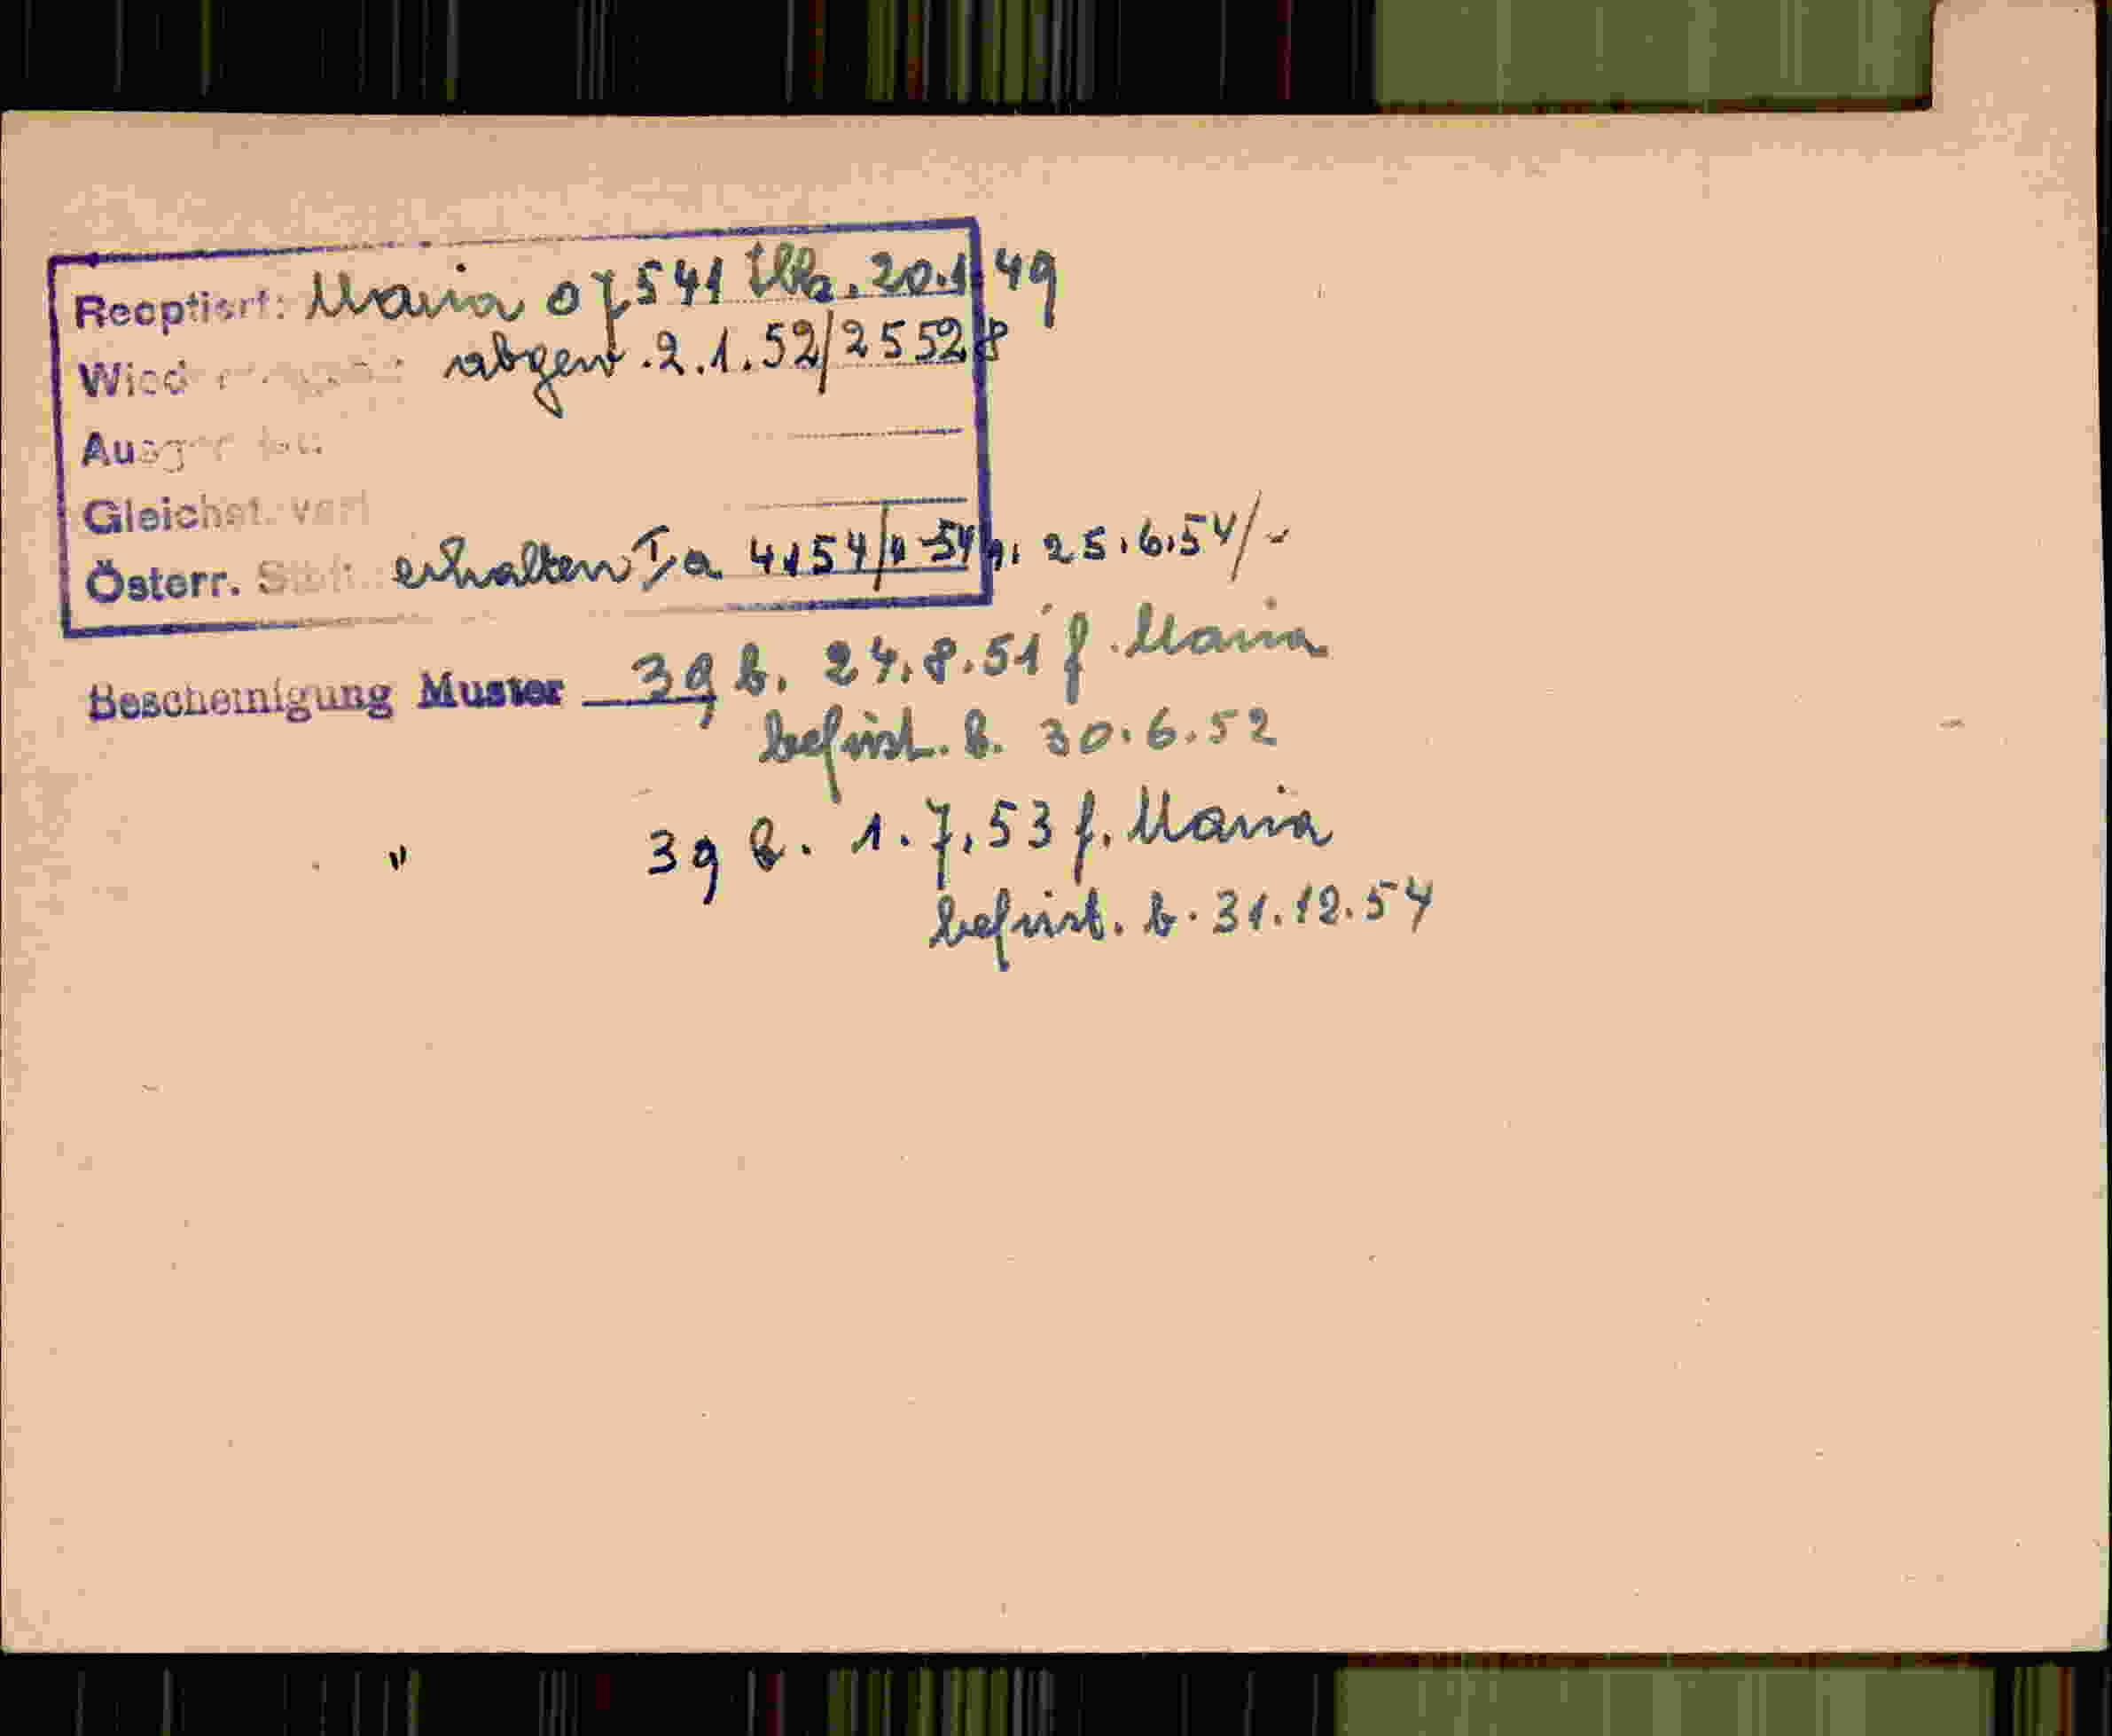 Reoptiert: Maria 07541 20.1.49
abgew. 2.1.52/25528
Gleichst. verl
Österr. erhalten I/a 25.6.54/
Bescheinigung Muster 3g b. 24.8.51 f. Maria
befrist. b. 30.6.52
" 3g b. 1.7.53 f. Maria
befrist. b. 31.12.54